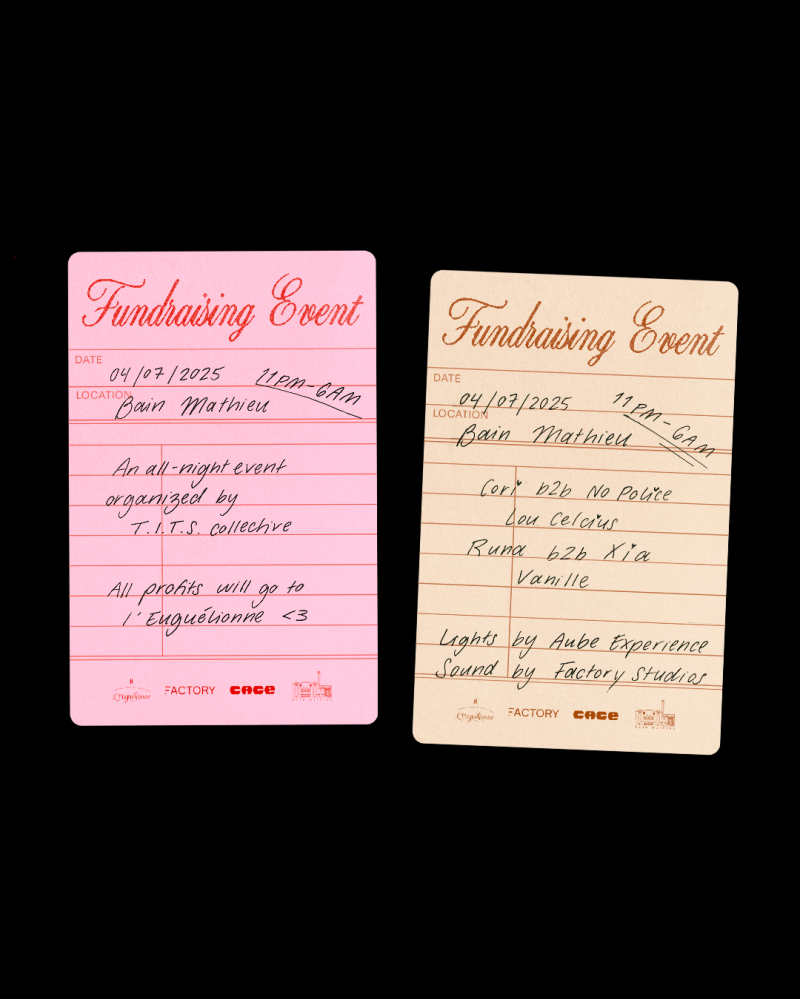 Fundraising Event
DATE
04/07/2025 11PM-6AM
LOCATION
Bain Mathieu
An all-night event
organized by
T.I.T.S. collective
All profits will go to
l'Euguélionne <3
L'Euguélionne
FACTORY
CAGE
BAIN MATHIEU
Fundraising Event
DATE
04/07/2025 11PM-6AM
LOCATION
Bain Mathieu
Cori b2b No Police
Lou Celcius
Runa b2b Xia
Vanille
Lights by Aube Experience
Sound by Factory Studios
L'Euguélionne
FACTORY
CAGE
BAIN MATHIEU